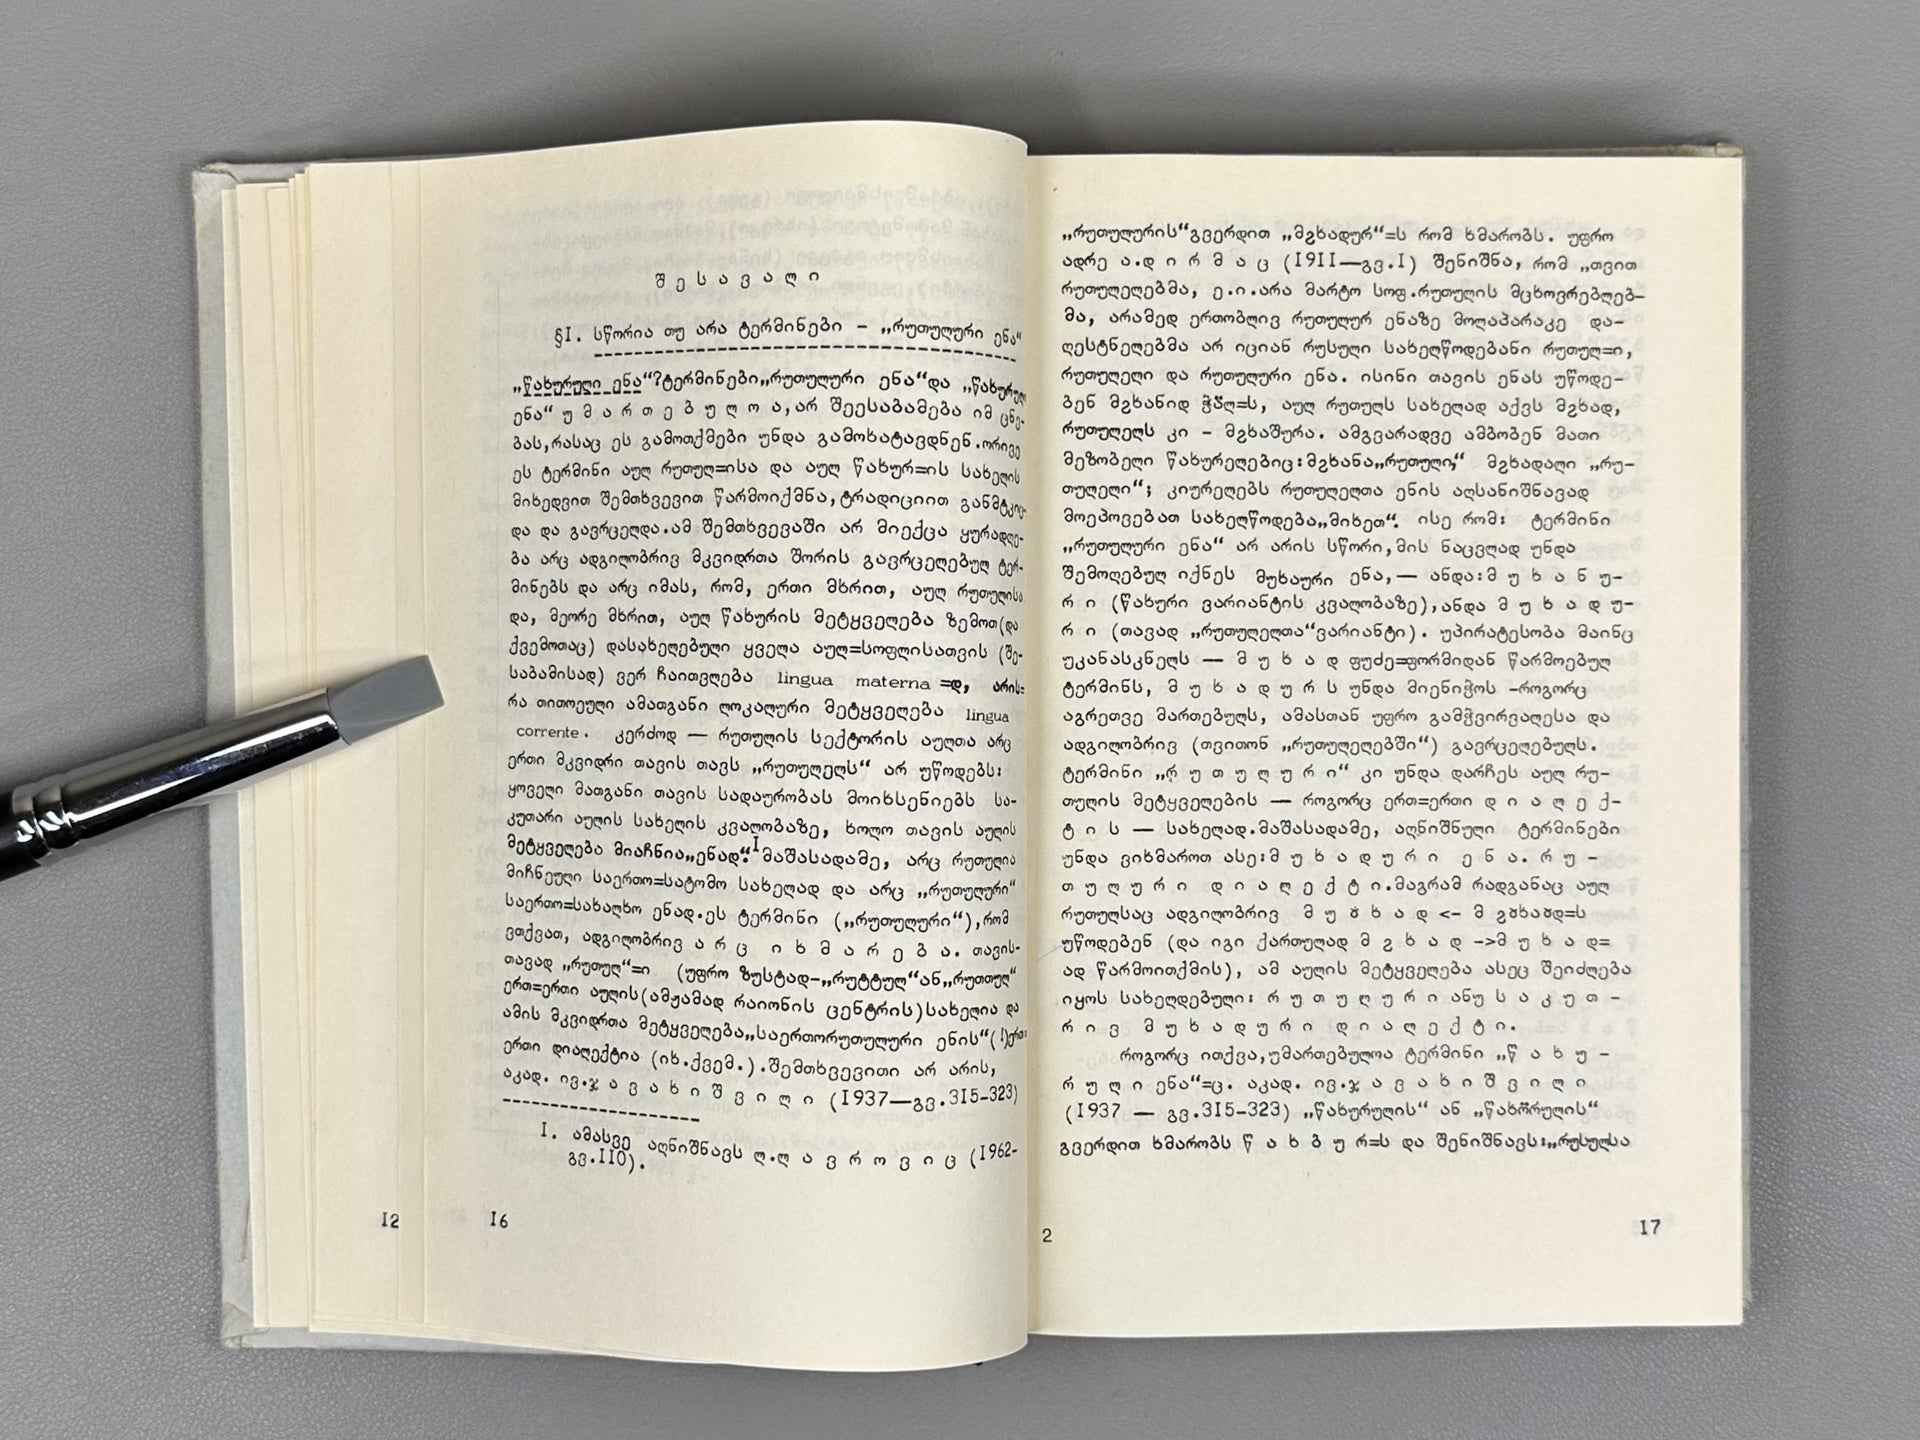 შ ე ს ა ვ ა ლ ი
§I. სწორია თუ არა ტერმინები – „რუთულური ენა“
„წახურული ენა“?ტერმინები„რუთულური ენა“და „წახურული
ენა“ უ მ ა რ თ ე ბ უ ლ ო ა,არ შეესაბამება იმ ცნე-
ბას,რასაც ეს გამოთქმები უნდა გამოხატავდნენ.ორივე
ეს ტერმინი აულ რუთულ=ისა და აულ წახურ=ის სახელის
მიხედვით შემთხვევით წარმოიქმნა,ტრადიციით განმტკიც-
და და გავრცელდა.ამ შემთხვევაში არ მიექცა ყურადღე-
ბა არც ადგილობრივ მკვიდრთა შორის გავრცელებულ ტერ-
მინებს და არც იმას, რომ, ერთი მხრით, აულ რუთულისა
და, მეორე მხრით, აულ წახურის მეტყველება ზემოთ(და
ქვემოთაც) დასახელებული ყველა აულ=სოფლისათვის (შე-
საბამისად) ვერ ჩაითვლება lingua materna =დ, არის=
რა თითოეული ამათგანი ლოკალური მეტყველება lingua
corrente. კერძოდ — რუთულის სექტორის აულთა არც
ერთი მკვიდრი თავის თავს „რუთულელს“ არ უწოდებს:
ყოველი მათგანი თავის სადაურობას მოიხსენიებს სა-
კუთარი აულის სახელის კვალობაზე, ხოლო თავის აულის
მეტყველება მიაჩნია„ენად“.I მაშასადამე, არც რუთულია
მიჩნეული საერთო=სატომო სახელად და არც „რუთულური“
საერთო=სახალხო ენად.ეს ტერმინი („რუთულური“),რომ
ვთქვათ, ადგილობრივ ა რ ც ი ხ მ ა რ ე ბ ა. თავის-
თავად „რუთულ“=ი (უფრო ზუსტად–„რუტტულ“ან„რუთთულ“
ერთ=ერთი აულის(ამჟამად რაიონის ცენტრის)სახელია და
ამის მკვიდრთა მეტყველება„საერთორუთულური ენის“(!)ერთ=
ერთი დიალექტია (იხ.ქვემ.).შემთხვევითი არ არის,
აკად. ივ.ჯ ა ვ ა ხ ი შ ვ ი ლ ი (1937—გვ.315-323)
I. ამასვე აღნიშნავს ლ.ლ ა ვ რ ო ვ ი ც (1962-
გვ.110).
12
16
„რუთულურის“გვერდით „მჷხადურ“=ს რომ ხმარობს. უფრო
ადრე ა.დ ი რ მ ა ც (1911—გვ.1) შენიშნა, რომ „თვით
რუთულელებმა, ე.ი.არა მარტო სოფ.რუთულის მცხოვრებლებ–
მა, არამედ ერთობლივ რუთულურ ენაზე მოლაპარაკე და–
ღესტნელებმა არ იციან რუსული სახელწოდებანი რუთულ=ი,
რუთულელი და რუთულური ენა. ისინი თავის ენას უწოდე–
ბენ მჷხანიდ ჭალ=ს, აულ რუთულს სახელად აქვს მჷხად,
რუთულელს კი – მჷხაშურა. ამგვარადვე ამბობენ მათი
მეზობელი წახურელებიც:მჷხანა„რუთული,“ მჷხადალი „რუ–
თულელი“; კიურელებს რუთულელთა ენის აღსანიშნავად
მოეპოვებათ სახელწოდება„მიხეთ“. ისე რომ: ტერმინი
„რუთულური ენა“ არ არის სწორი,მის ნაცვლად უნდა
შემოღებულ იქნეს მუხაური ენა,— ანდა:მ უ ხ ა ნ უ–
რ ი (წახური ვარიანტის კვალობაზე),ანდა მ უ ხ ა დ უ–
რ ი (თავად „რუთულელთა“ვარიანტი). უპირატესობა მაინც
უკანასკნელს — მ უ ხ ა დ ფუძე=ფორმიდან წარმოებულ
ტერმინს, მ უ ხ ა დ უ რ ს უნდა მიენიჭოს –როგორც
აგრეთვე მართებულს, ამასთან უფრო გამჭვირვალესა და
ადგილობრივ (თვითონ „რუთულელებში“) გავრცელებულს.
ტერმინი „რ უ თ უ ლ უ რ ი“ კი უნდა დარჩეს აულ რუ–
თულის მეტყველების — როგორც ერთ=ერთი დ ი ა ლ ე ქ–
ტ ი ს — სახელად.მაშასადამე, აღნიშნული ტერმინები
უნდა ვიხმაროთ ასე:მ უ ხ ა დ უ რ ი ე ნ ა. რ უ –
თ უ ლ უ რ ი დ ი ა ლ ე ქ ტ ი.მაგრამ რადგანაც აულ
რუთულსაც ადგილობრივ მ უ ხ ა დ <– მ
უწოდებენ (და იგი ქართულად მ ჷ ხ ა დ –>მ უ ხ ა დ=
ად წარმოითქმის), ამ აულის მეტყველება ასეც შეიძლება
იყოს სახელდებული: რ უ თ უ ლ უ რ ი ანუ ს ა კ უ თ –
რ ი ვ მ უ ხ ა დ უ რ ი დ ი ა ლ ე ქ ტ ი.
როგორც ითქვა,უმართებულოა ტერმინი „წ ა ხ უ –
რ უ ლ ი ენა“=ც. აკად. ივ.ჯ ა ვ ა ხ ი შ ვ ი ლ ი
(1937 — გვ.315–323) „წახურულის“ ან „წახურულის“
გვერდით ხმარობს წ ა ხ ბ უ რ=ს და შენიშნავს:„რუსულსა
2
17